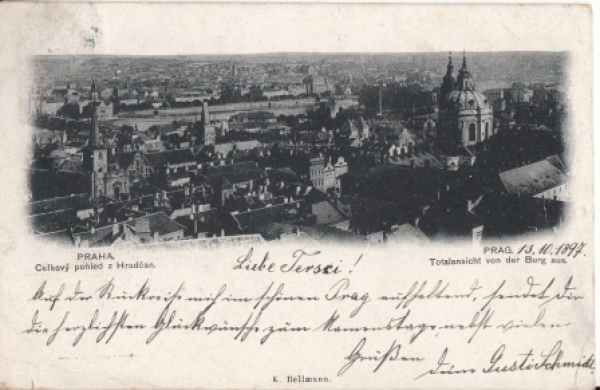 PRAHA.
Celkový pohled z Hradčan.
PRAG. 13.10.1897.
Totalansicht von der Burg aus.
Liebe Tersci!
Auf der Rückreise mich im schönen Prag aufhaltend, sendet Dir
die herzlichsten Glückwünsche zum Namenstage nebst vielen
Grüßen deine Gusti Schmidt
K. Bellmann.